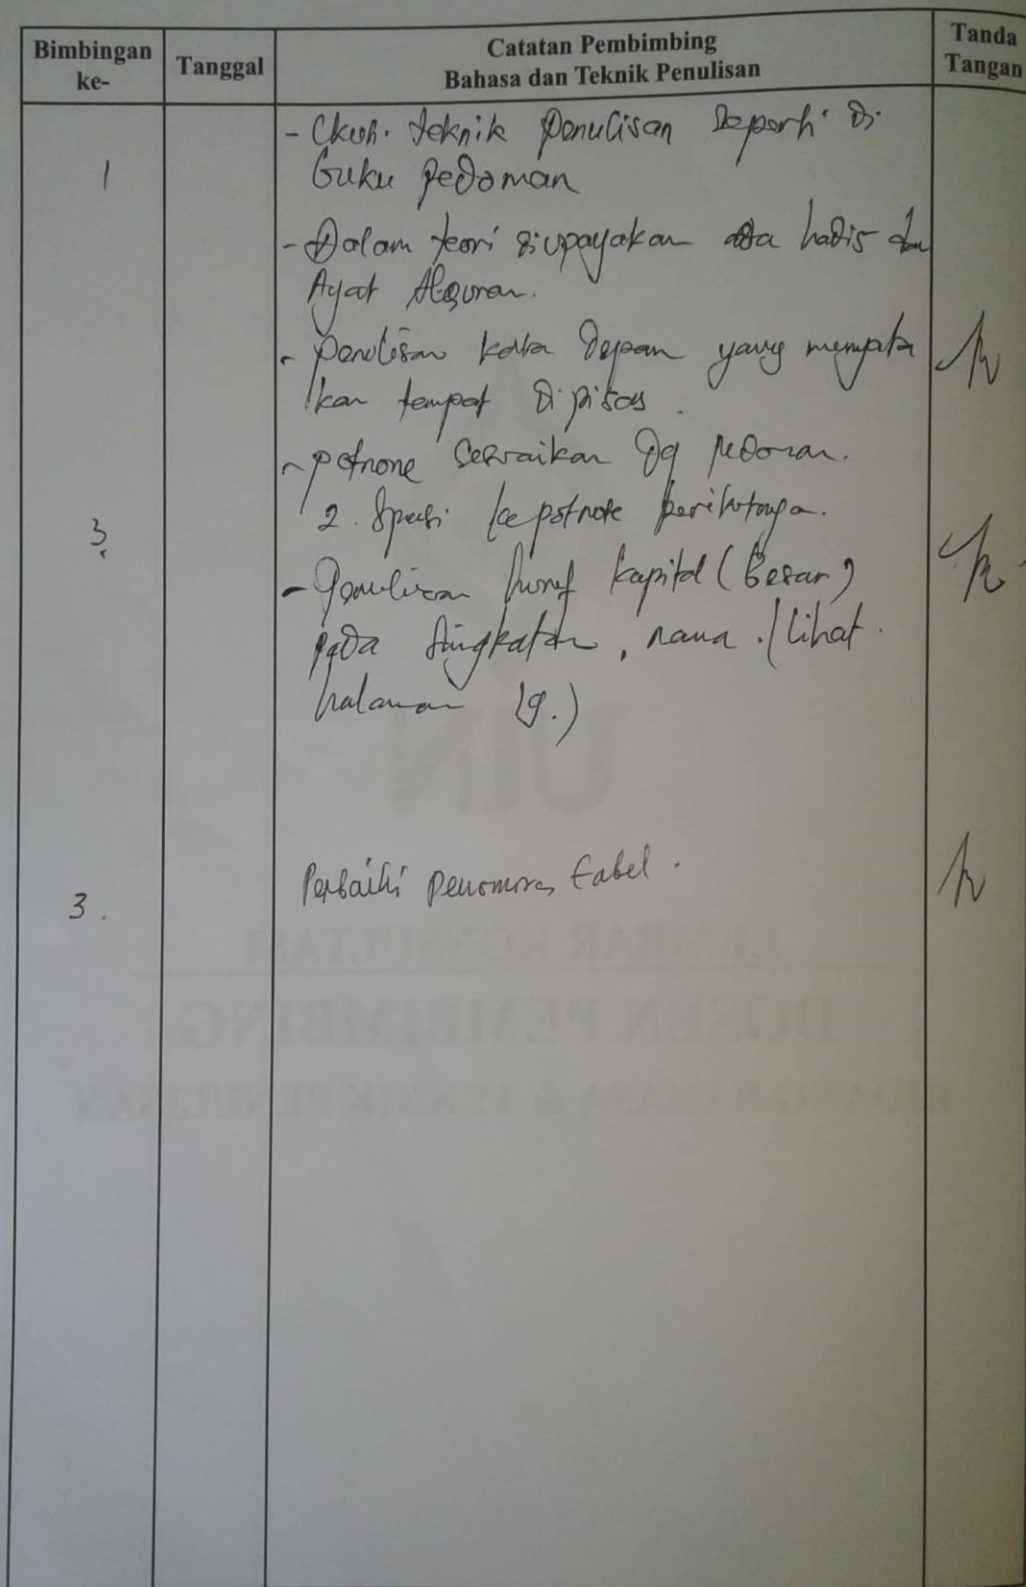 Bimbingan ke-
Tanggal
Catatan Pembimbing
Bahasa dan Teknik Penulisan
Tanda Tangan
1
- teknik penulisan seperti di
buku pedoman
- Dalam teori diupayakan ada hadis dan
Ayat Alquran.
- penulisan kata depan yang menyata
kan tempat dipisas.
- potnone sesuaikan dg pedoman.
3.
2. Spasi ke potnote berikutnya.
- Penulisan huruf kapital (besar)
pada singkatan, nama. / lihat.
halaman 19.)
3.
Perbaiki penomoran tabel.
UIN
LEMBAR KONSULTASI
DOSEN PEMBIMBING
BIDANG BAHASA & TEKNIK PENULISAN